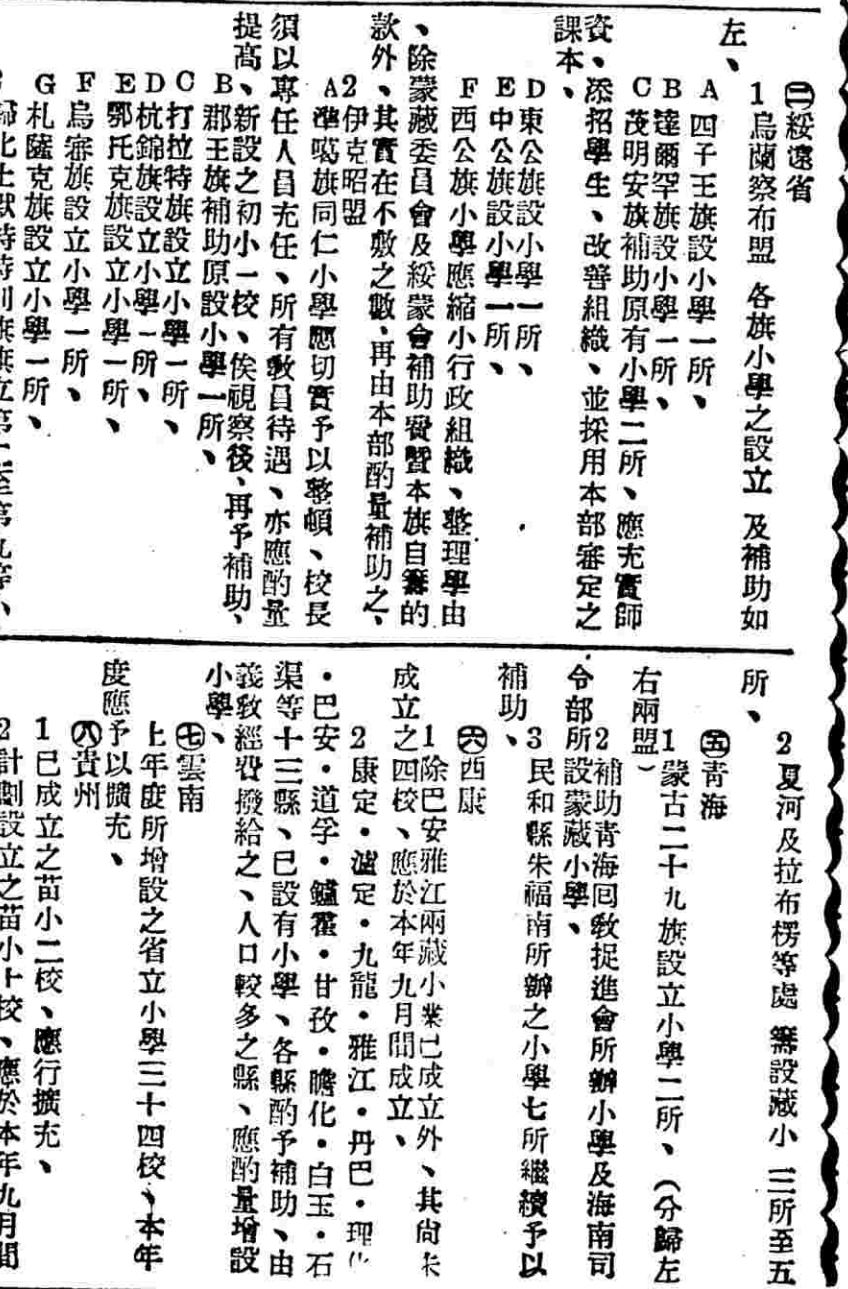 ㊂綏遠省
1 烏蘭察布盟 各旗小學之設立 及補助如
左、
A 四子王旗設小學一所、
B 達爾罕旗設小學一所、
C 茂明安旗補助原有小學二所、應充實師
資、添招學生、改善組織、並採用本部審定之
課本、
D 東公旗設小學一所、
E 中公旗設小學一所、
F 西公旗小學應縮小行政組織、整理學由
、除蒙藏委員會及綏蒙會補助費暨本旗自籌的
款外、其實在不敷之數、再由本部酌量補助之、
2 伊克昭盟
A 準噶旗同仁小學應切實予以整頓、校長
須以專任人員充任、所有敎員待遇、亦應酌量
提高、新設之初小一校、俟視察後、再予補助、
B 郡王旗補助原設小學一所、
C 打拉特旗設立小學一所、
D 杭錦旗設立小學一所、
E 鄂托克旗設立小學一所、
F 烏審旗設立小學一所、
G 札薩克旗設立小學一所、
2 夏河及拉布楞等處 籌設藏小 三所至五
所、
㊄青海
1 蒙古二十九旗設立小學二所、(分歸左
右兩盟)
2 補助靑海回敎捉進會所辦小學及海南司
令部所設蒙藏小學、
3 民和縣朱福南所辦之小學七所繼續予以
補助、
㊅西康
1 除巴安雅江兩藏小業已成立外、其尙未
成立之四校、應於本年九月間成立、
2 康定・瀘定・九龍・雅江・丹巴・理
・巴安・道孚・鑪霍・甘孜・瞻化・白玉・石
渠等十三縣、已設有小學、各縣酌予補助、由
義敎經費撥給之、人口較多之縣、應酌量增設
小學、
㊆雲南
上年度所增設之省立小學三十四校、本年
度應予以擴充、
㊇貴州
1 已成立之苗小二校、應行擴充、
2 計劃設立之苗小十校、應於本年九月間